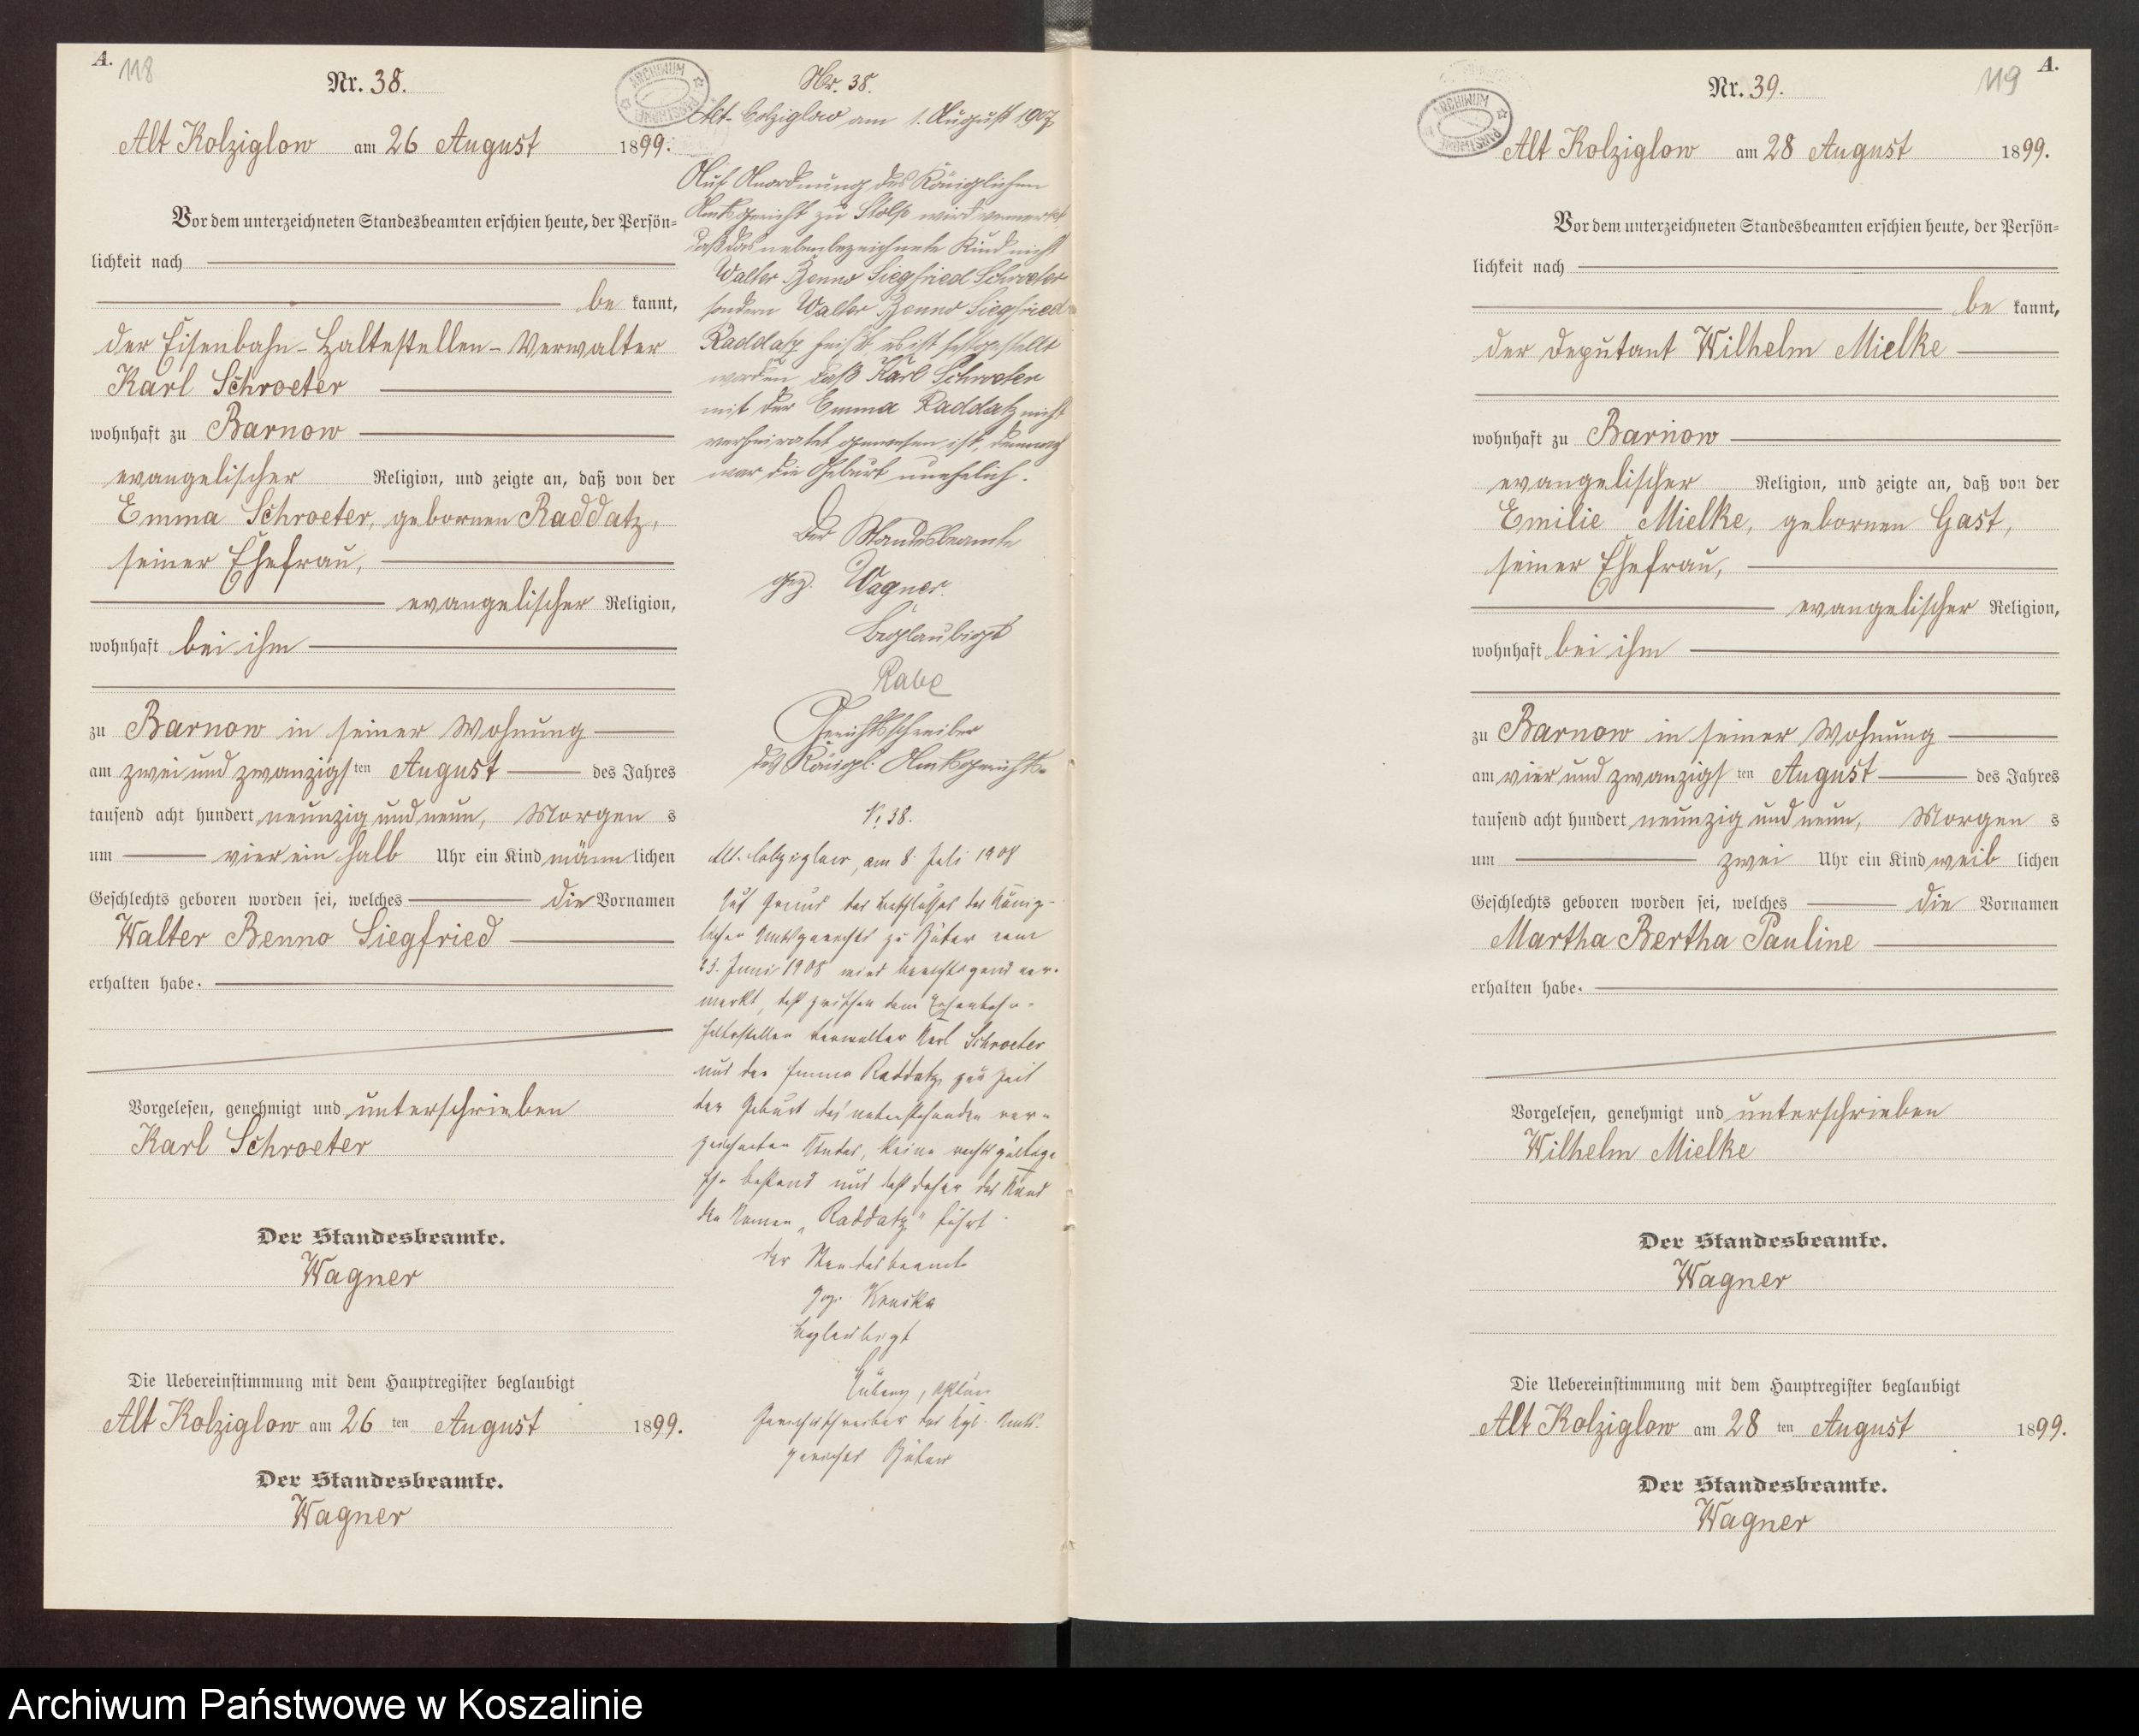 A.
118
Nr. 38.
ARCHIWUM
Alt Kolziglow am 26 August 1899.
Vor dem unterzeichneten Standesbeamten erschien heute, der Persön=
lichkeit nach
be kannt,
der Eisenbahn-Haltestellen-Verwalter
Karl Schroeter
wohnhaft zu Barnow
evangelischer Religion, und zeigte an, daß von der
Emma Schroeter, gebornen Raddatz,
seiner Ehefrau,
evangelischer Religion,
wohnhaft bei ihm
zu Barnow in seiner Wohnung
am zwei und zwanzigsten August des Jahres
tausend acht hundert neunzig und neun, Morgens
um vier ein halb Uhr ein Kind männlichen
Geschlechts geboren worden sei, welches die Vornamen
Walter Benno Siegfried
erhalten habe.
Vorgelesen, genehmigt und unterschrieben
Karl Schroeter
Der Standesbeamte.
Wagner
Die Uebereinstimmung mit dem Hauptregister beglaubigt
Alt Kolziglow am 26 ten August 1899.
Der Standesbeamte.
Wagner
Nr. 38.
Alt-Colziglow am 1. August 1907
Auf Anordnung des Königlichen
Amtsgericht zu Stolp wird vermerkt,
daß das nebenbezeichnete Kind nicht
Walter Benno Siegfried Schroeter
sondern Walter Benno Siegfried
Raddatz heißt, es ist festgestellt
worden, daß Karl Schroeter
mit der Emma Raddatz nicht
verheiratet gewesen ist, demnach
war die Geburt unehelich.
Der Standesbeamte
gez. Wagner.
Beglaubigt
Rabe
Gerichtsschreiber
des Königl. Amtsgerichts.
N. 38.
Alt. Colziglow, am 8. Juli 1908
Auf Grund des Beschlusses des König-
lichen Amtsgerichts zu Bütow vom
23. Juni 1908 wird berichtigend ver-
merkt, daß zwischen dem Eisenbahn-
haltestellen Verwalter Karl Schroeter
und der Emma Raddatz zur Zeit
der Geburt des nebenstehenden ver-
zeichneten Kindes, keine rechtsgültige
Ehe bestand und daß daher das Kind
den Namen „Raddatz" führt.
Der Standesbeamte
gez. Kruska
beglaubigt
Gerichtsschreiber des Kgl. Amts-
gerichts Bütow
A.
119
Nr. 39.
ARCHIWUM
Alt Kolziglow am 28 August 1899.
Vor dem unterzeichneten Standesbeamten erschien heute, der Persön=
lichkeit nach
be kannt,
der Deputant Wilhelm Mielke
wohnhaft zu Barnow
evangelischer Religion, und zeigte an, daß von der
Emilie Mielke, gebornen Gast,
seiner Ehefrau,
evangelischer Religion,
wohnhaft bei ihm
zu Barnow in seiner Wohnung
am vier und zwanzigsten August des Jahres
tausend acht hundert neunzig und neun, Morgens
um zwei Uhr ein Kind weiblichen
Geschlechts geboren worden sei, welches die Vornamen
Martha Bertha Pauline
erhalten habe.
Vorgelesen, genehmigt und unterschrieben
Wilhelm Mielke
Der Standesbeamte.
Wagner
Die Uebereinstimmung mit dem Hauptregister beglaubigt
Alt Kolziglow am 28 ten August 1899.
Der Standesbeamte.
Wagner
Archiwum Państwowe w Koszalinie